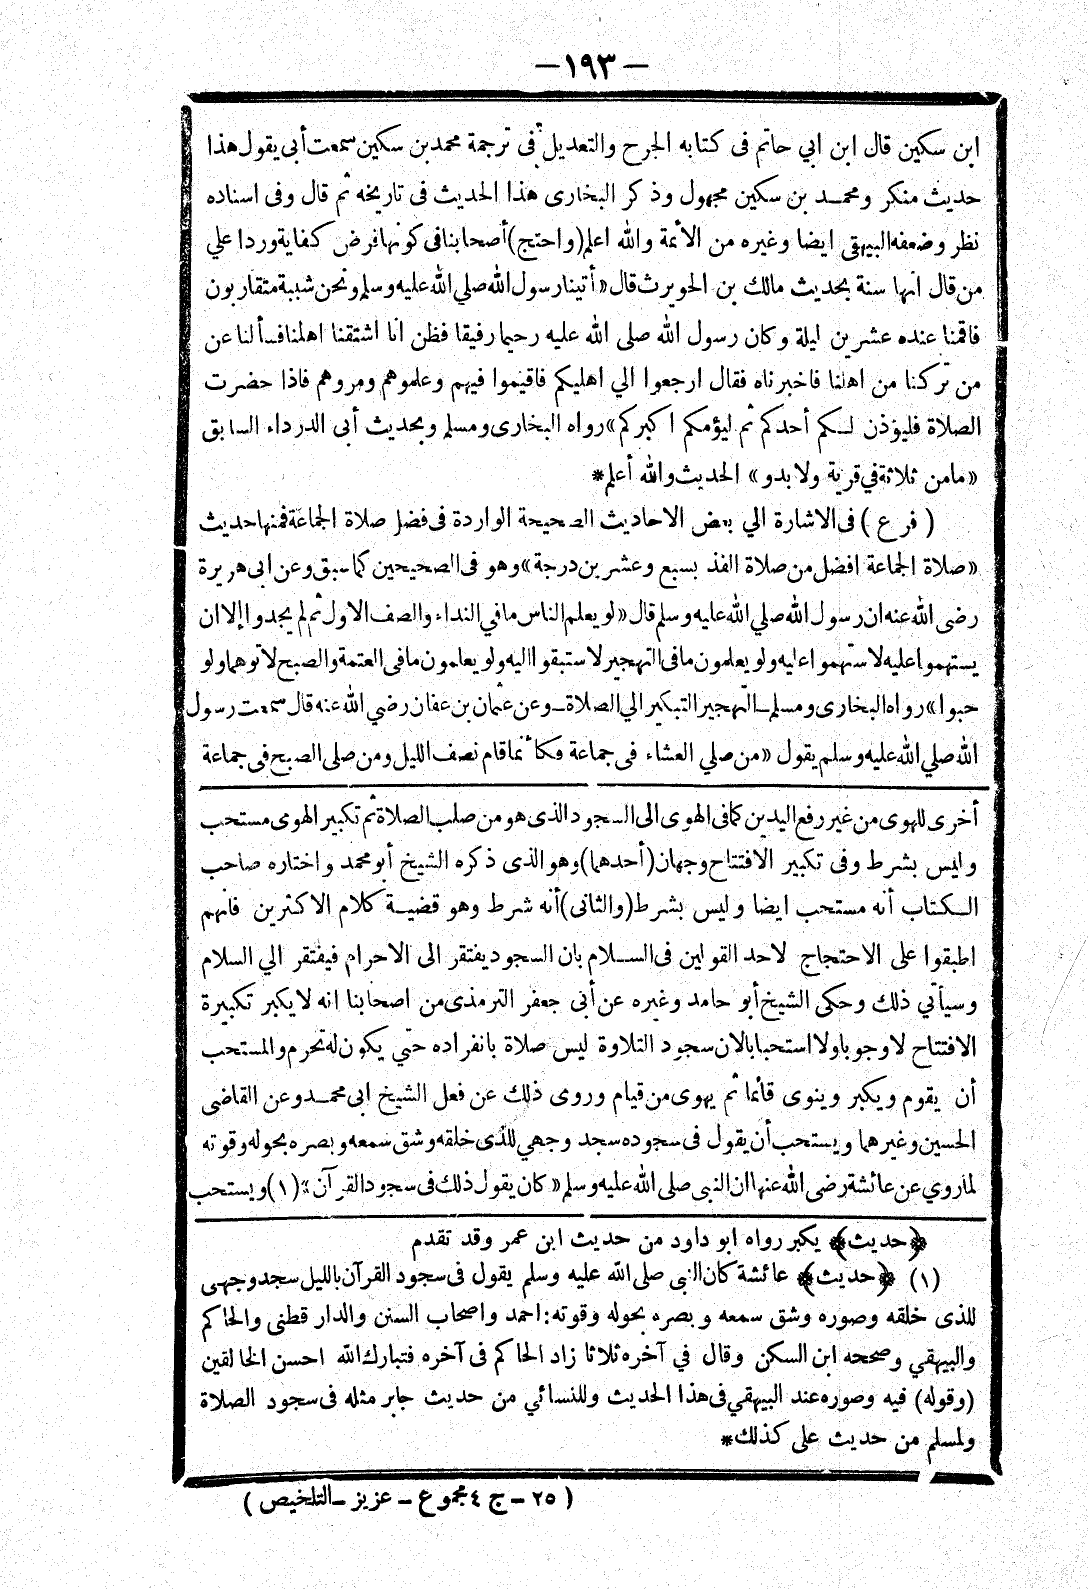 — ١٩٣ —
ابن سكين قال ابن ابي حاتم فى كتابه الجرح والتعديل فى ترجمة محمد بن سكين سمعت أبى يقول هذا
حديث منكر ومحمد بن سكين مجهول وذكر البخارى هذا الحديث فى تاريخه ثم قال وفى اسناده
نظر وضعفه البيهقى ايضا وغيره من الأئمة والله اعلم (واحتج) أصحابنا فى كونها فرض كفاية وردا علي
من قال انها سنة بحديث مالك بن الحويرث قال «أتينا رسول الله صلي الله عليه وسلم ونحن شببة متقاربون
فاقمنا عنده عشرين ليلة وكان رسول الله صلى الله عليه رحيما رفيقا فظن انا اشتقنا اهلنا فسألنا عن
من تركنا من اهلنا فاخبرناه فقال ارجعوا الي اهليكم فاقيموا فيهم وعلموهم ومروهم فاذا حضرت
الصلاة فليؤذن لكم أحدكم ثم ليؤمكم اكبركم» رواه البخارى ومسلم وبحديث أبى الدرداء السابق
«مامن ثلاثة في قرية ولا بدو» الحديث والله أعلم*
(فرع) فى الاشارة الي بعض الاحاديث الصحيحة الواردة فى فضل صلاة الجماعة فمنها حديث
«صلاة الجماعة افضل من صلاة الفذ بسبع وعشرين درجة» وهو فى الصحيحين كما سبق وعن ابى هريرة
رضى الله عنه ان رسول الله صلي الله عليه وسلم قال «لو يعلم الناس مافي النداء والصف الاول ثم لم يجدوا إلا ان
يستهموا عليه لاستهموا عليه ولو يعلمون مافى التهجير لاستبقوا اليه ولو يعلمون مافى العتمة والصبح لاتوهما ولو
حبوا» رواه البخارى ومسلم ـ التهجير التبكير الي الصلاة ـ وعن عثمان بن عفان رضي الله عنه قال سمعت رسول
الله صلي الله عليه وسلم يقول «من صلي العشاء فى جماعة فكأنما قام نصف الليل ومن صلى الصبح فى جماعة
أخرى للهوى من غير رفع اليدين كما فى الهوى الى السجود الذى هو من صلب الصلاة ثم تكبير الهوى مستحب
وليس بشرط وفى تكبير الافتتاح وجهان (أحدهما) وهو الذى ذكره الشيخ أبو محمد واختاره صاحب
الكتاب أنه مستحب ايضا وليس بشرط (والثانى) أنه شرط وهو قضية كلام الاكثرين فانهم
اطبقوا على الاحتجاج لاحد القولين فى السلام بان السجود يفتقر الى الاحرام فيفتقر الي السلام
وسيأتي ذلك وحكى الشيخ أبو حامد وغيره عن أبى جعفر الترمذى من اصحابنا انه لا يكبر تكبيرة
الافتتاح لا وجوبا ولا استحبابا لان سجود التلاوة ليس صلاة بانفراده حتي يكون له تحرم والمستحب
أن يقوم ويكبر وينوى قائما ثم يهوى من قيام وروى ذلك عن فعل الشيخ ابى محمد وعن القاضى
الحسين وغيرهما ويستحب أن يقول فى سجوده سجد وجهي للذى خلقه وشق سمعه وبصره بحوله وقوته
لما روي عن عائشة رضى الله عنها ان النبى صلى الله عليه وسلم «كان يقول ذلك فى سجود القرآن» (١) ويستحب
﴿حديث﴾ يكبر رواه ابو داود من حديث ابن عمر وقد تقدم
(١) ﴿حديث﴾ عائشة كان النبى صلى الله عليه وسلم يقول فى سجود القرآن بالليل سجد وجهى
للذى خلقه وصوره وشق سمعه وبصره بحوله وقوته: احمد واصحاب السنن والدار قطنى والحاكم
والبيهقي وصححه ابن السكن وقال في آخره ثلاثا زاد الحاكم فى آخره فتبارك الله احسن الخالقين
(وقوله) فيه وصوره عند البيهقي فى هذا الحديث وللنسائي من حديث جابر مثله فى سجود الصلاة
ولمسلم من حديث على كذلك*
(٢٥ ـ ج ٤ مجموع ـ عزيز ـ التلخيص)